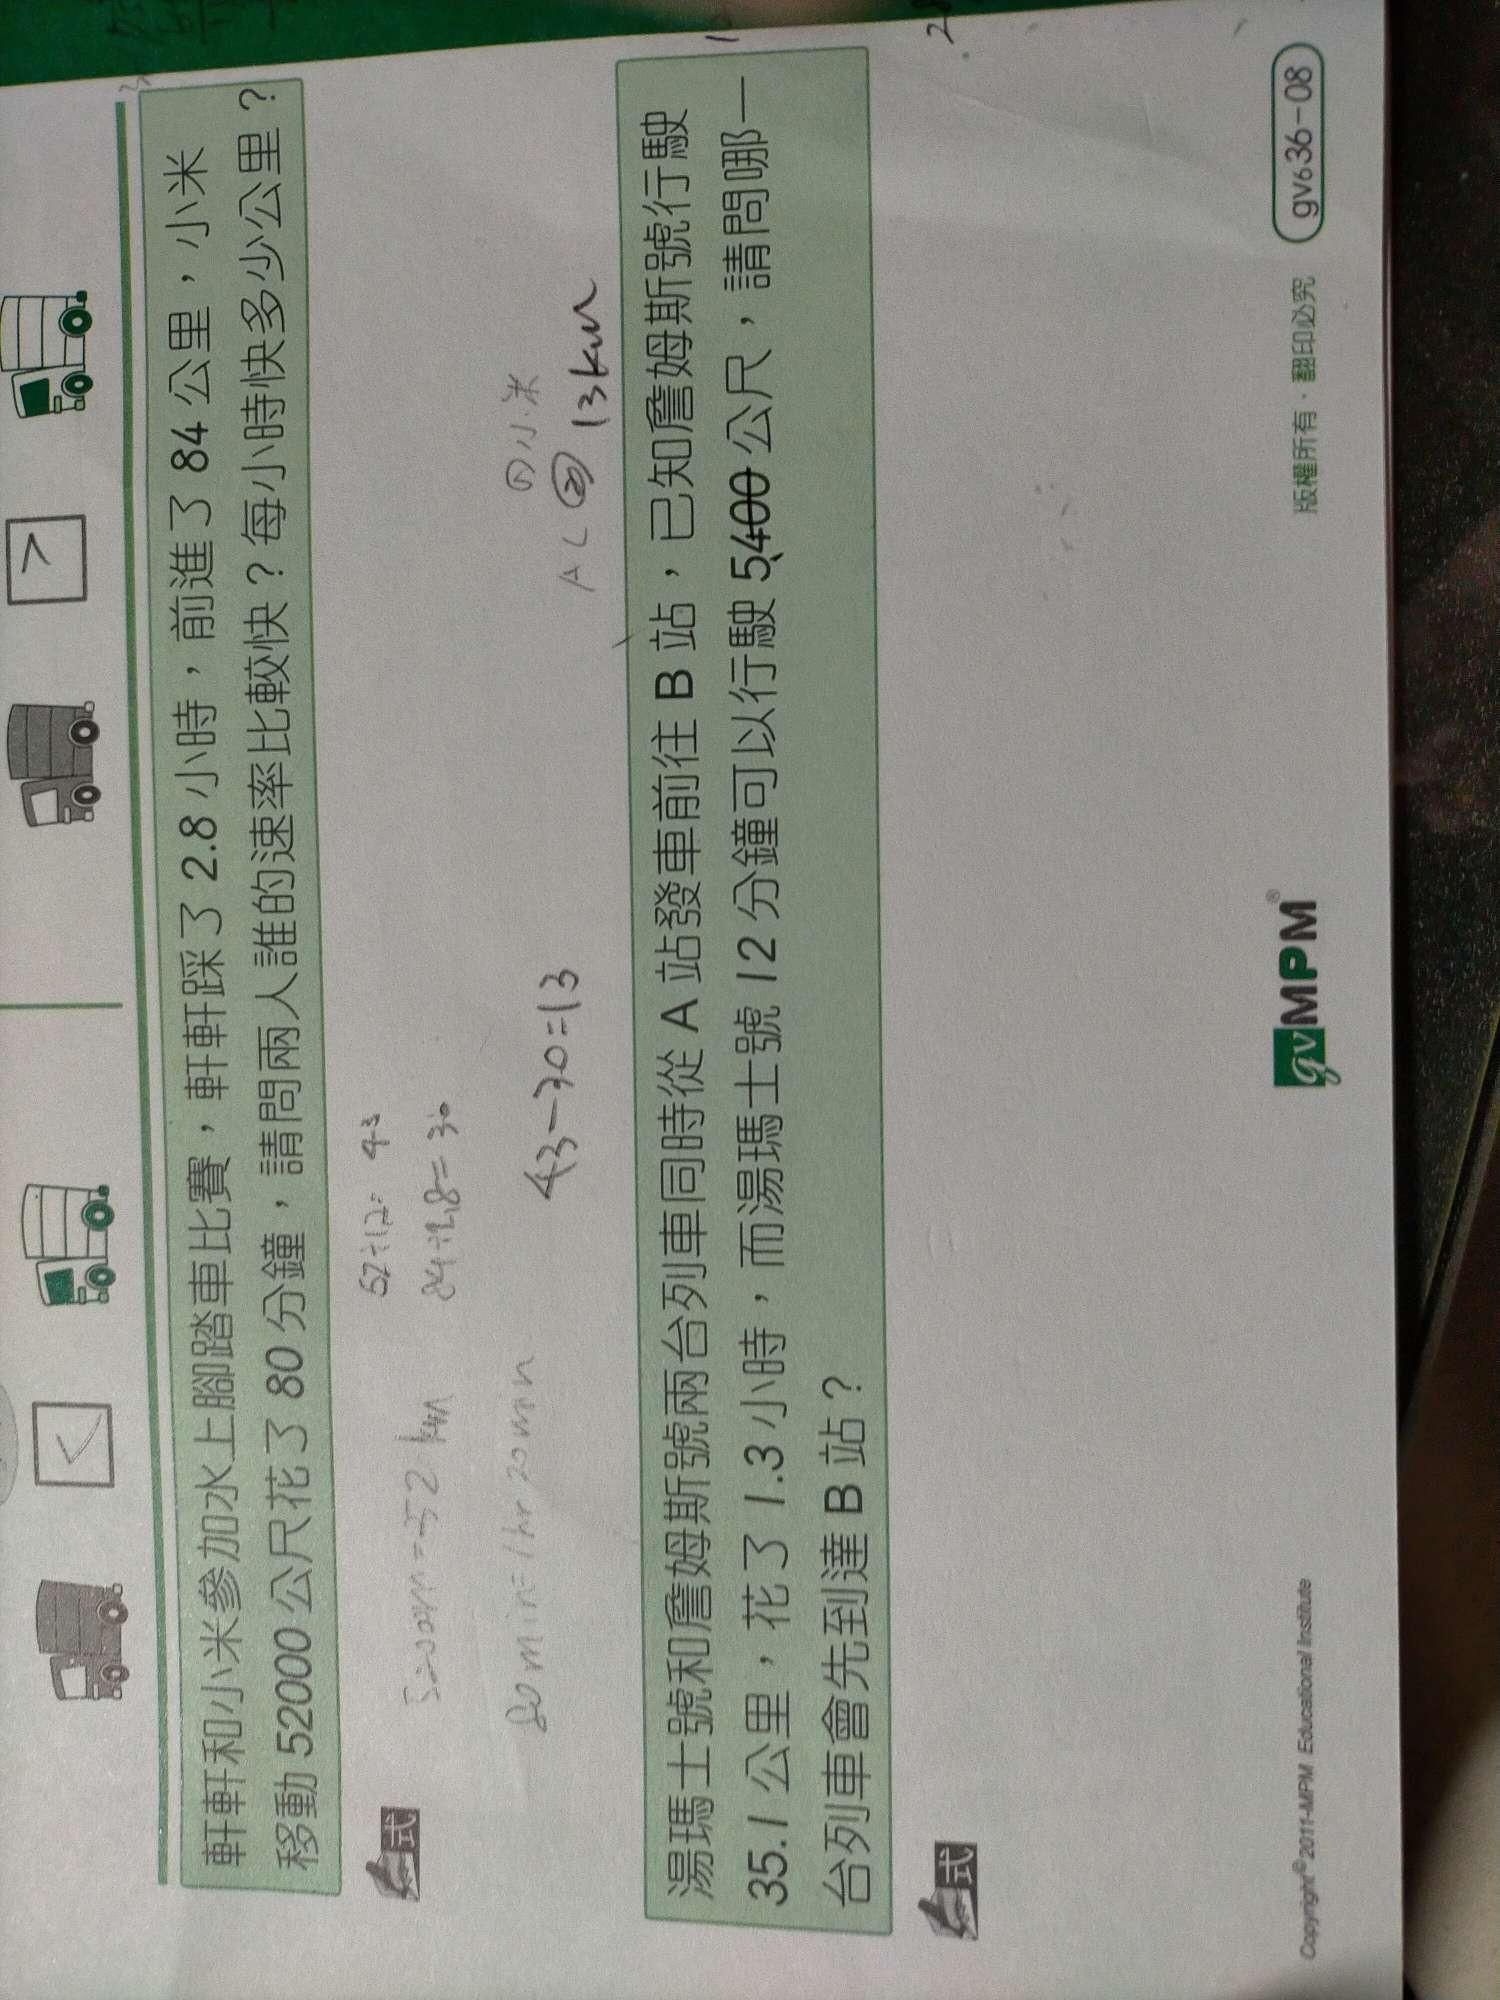 軒軒和小米參加水上腳踏車比賽，軒軒踩了 2.8 小時，前進了 84 公里，小米
移動 52000 公尺花了 80 分鐘，請問兩人誰的速率比較快？每小時快多少公里？
式
52÷1.2= 43
84÷2.8=30
=52km
80min=1hr20min
43-30=13
小米
13km
湯瑪士號和詹姆斯號兩台列車同時從 A 站發車前往 B 站，已知詹姆斯號行駛
35.1 公里，花了 1.3 小時，而湯瑪士號 12 分鐘可以行駛 5400 公尺，請問哪一
台列車會先到達 B 站？
式
Copyright©2011-MPM Educational Institute
gvMPM®
版權所有・翻印必究
gv636-08